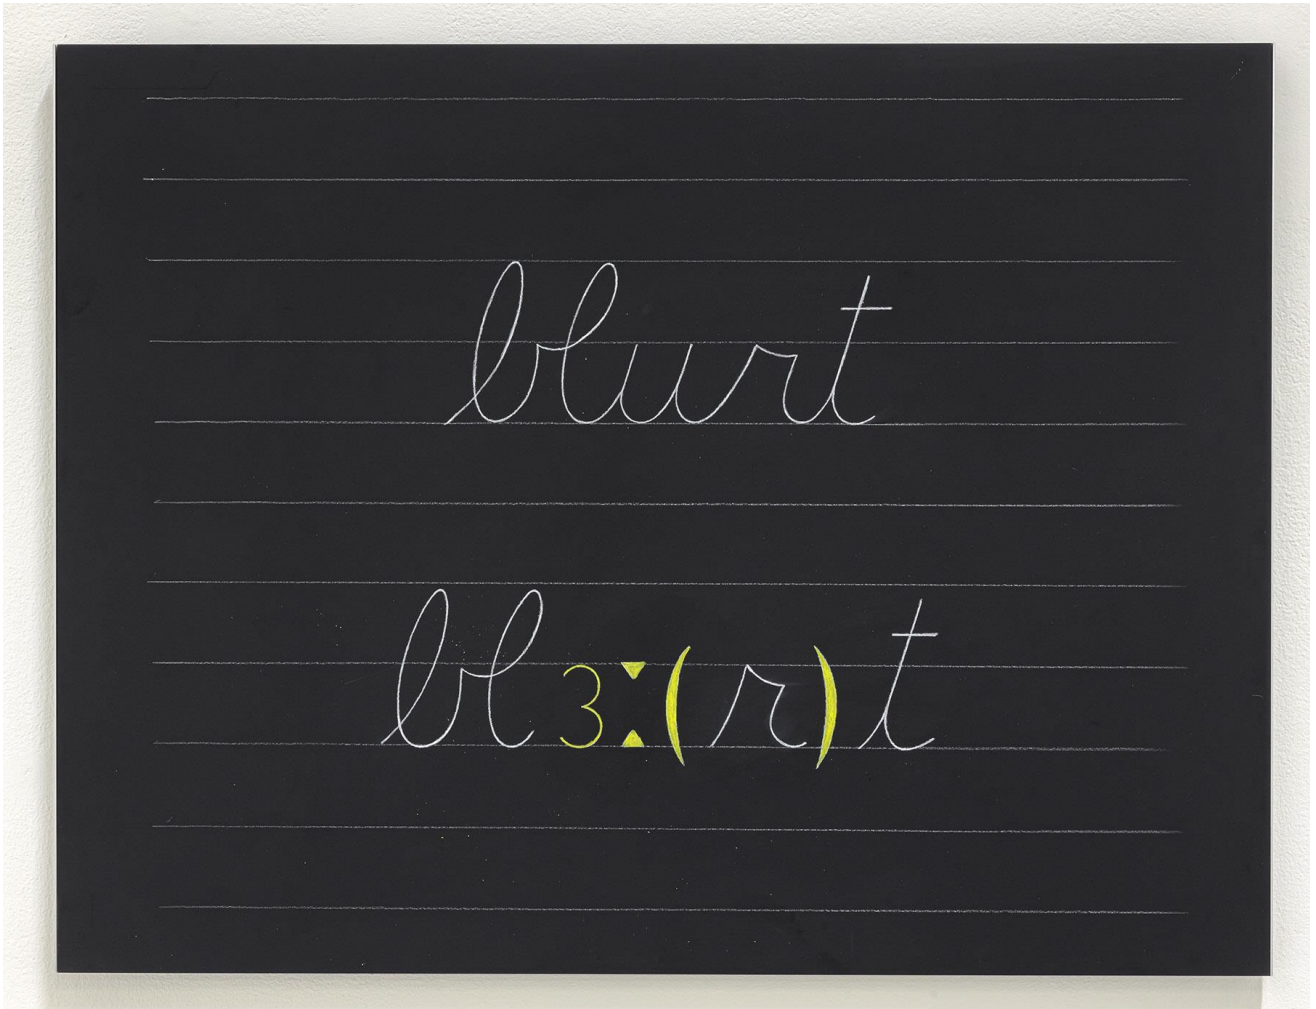 blurt
blɜː(r)t